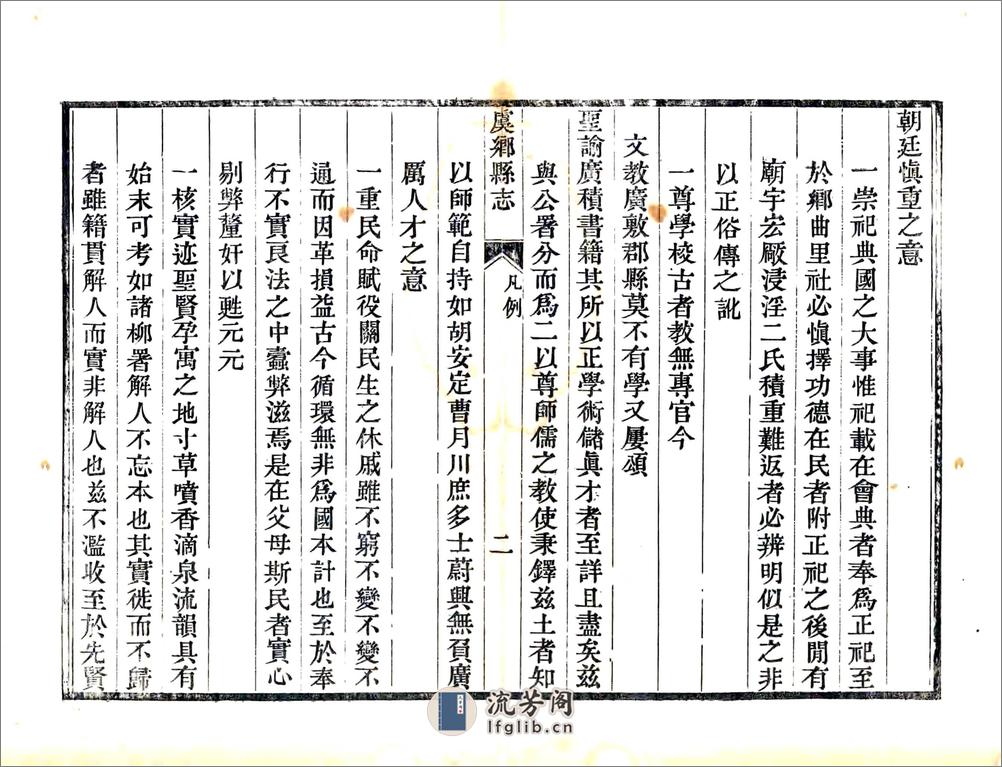 朝廷慎重之意
一崇祀典國之大事惟祀載在會典者奉爲正祀至
於鄉曲里社必慎擇功德在民者附正祀之後閒有
廟宇宏敞浸淫二氏積重難返者必辨明似是之非
以正俗傳之訛
一尊學校古者教無專官今
文教廣敷郡縣莫不有學又屢頒
聖諭廣積書籍其所以正學術儲眞才者至詳且盡矣兹
與公署分而爲二以尊師儒之教使秉鐸兹土者知
虞鄉縣志
凡例
二
以師範自持如胡安定曹月川庶多士蔚興無負廣
厲人才之意
一重民命賦役關民生之休戚雖不窮不變不變不
通而因革損益古今循環無非爲國本計也至於奉
行不實良法之中蠧弊滋焉是在父母斯民者實心
剔弊釐奸以甦元元
一核實迹聖賢孕寓之地寸草噴香滴泉流韻具有
始末可考如諸柳署解人不忘本也其實徙而不歸
者雖籍貫解人而實非解人也兹不濫收至於先賢
流芳阁
lfglib.cn